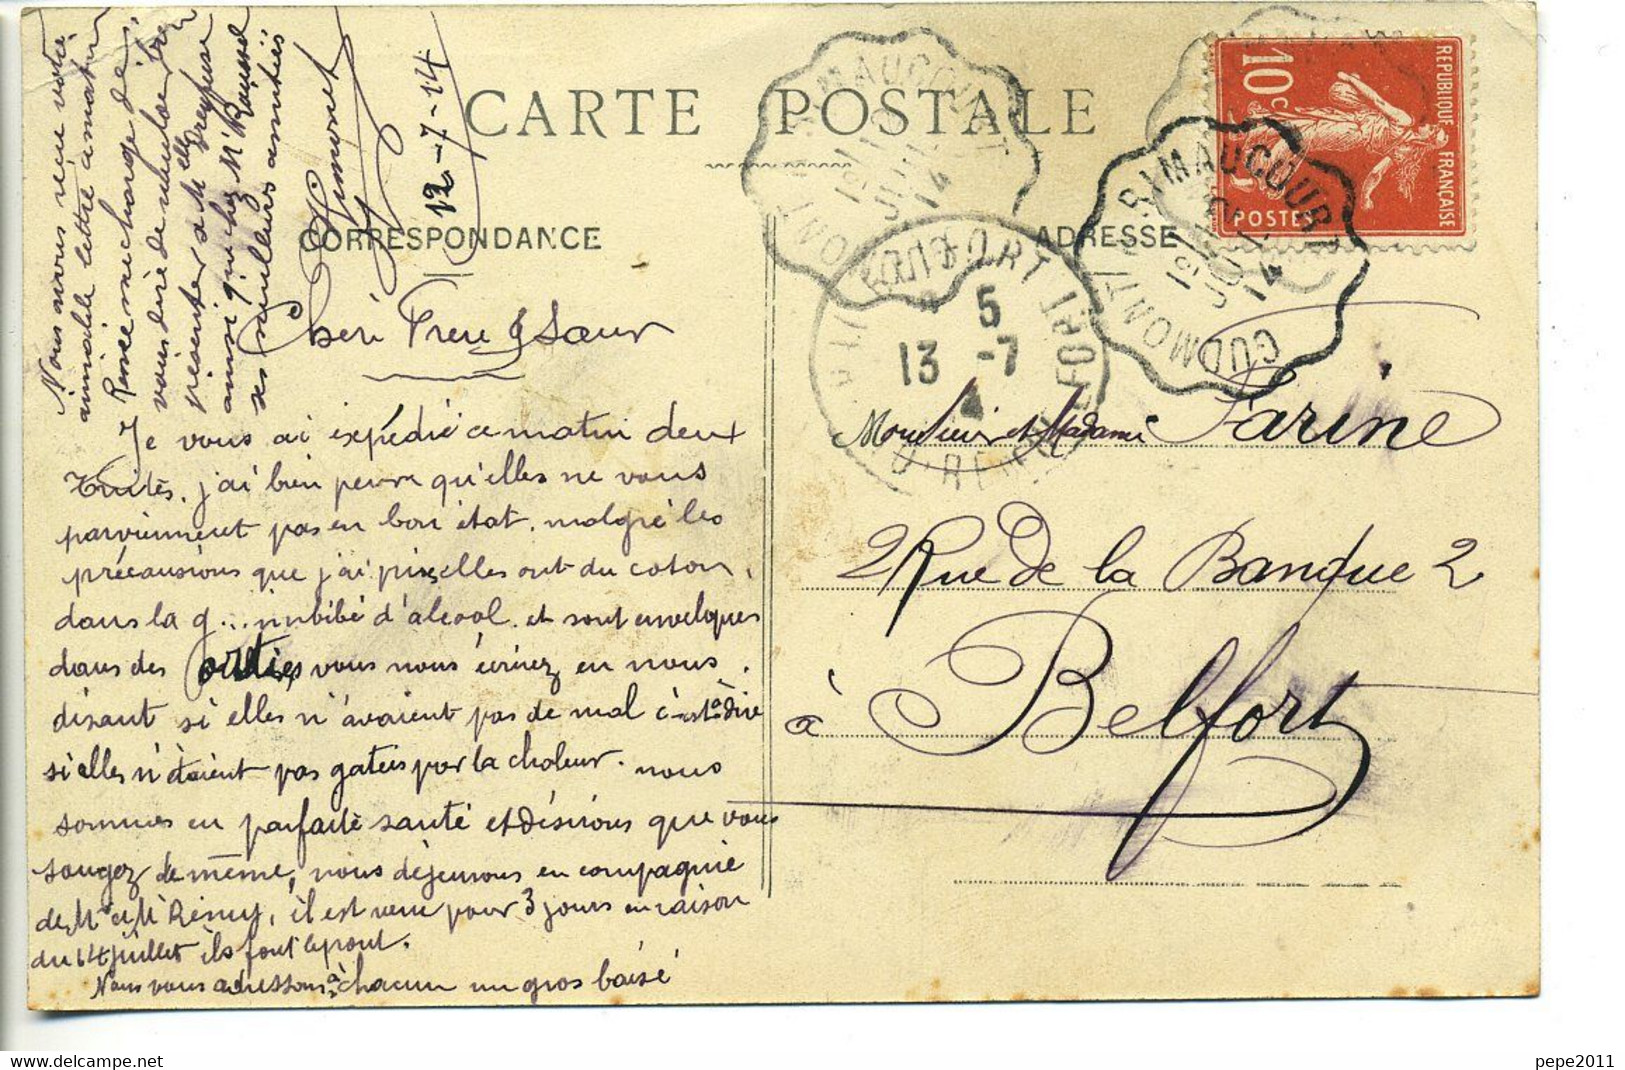 CARTE POSTALE
CORRESPONDANCE
ADRESSE
RÉPUBLIQUE FRANÇAISE
10c
POSTES
RIMAUCOURT
GUDMONT
12
JUIL
14
BELFORT
5
13 -7
12-7-14
Humonet
Chéri Frère & Sœur
Je vous ai expédié ce matin deux
truites, j'ai bien peur qu'elles ne vous
parviennent pas en bon état, malgré les
précausions que j'ai pris, elles ont du coton,
dans la g... imbibé d'alcool, et sont envelopés
dans des orties, vous nous écrirez en nous
disant si elles n'avaient pas de mal c'est à dire
si elles n'étaient pas gatées par la chaleur. nous
sommes en parfaite santé et désirons que vous
soyez de même, nous déjeunons en compagnie
de Me et Mr Rémy, il est venu pour 3 jours en raison
du 14 juillet ils font le pont.
Nous vous adressons à chacun un gros baisé
Nous avons reçu votre
aimable lettre ce matin
René me charge de
vous dire de
présenter à Melle Dreyfuse
ainsi que chez Mr Roussel
ses meilleurs amitiés
Monsieur et Madame Farine
2 Rue de la Banque 2
à Belfort
pepe2011